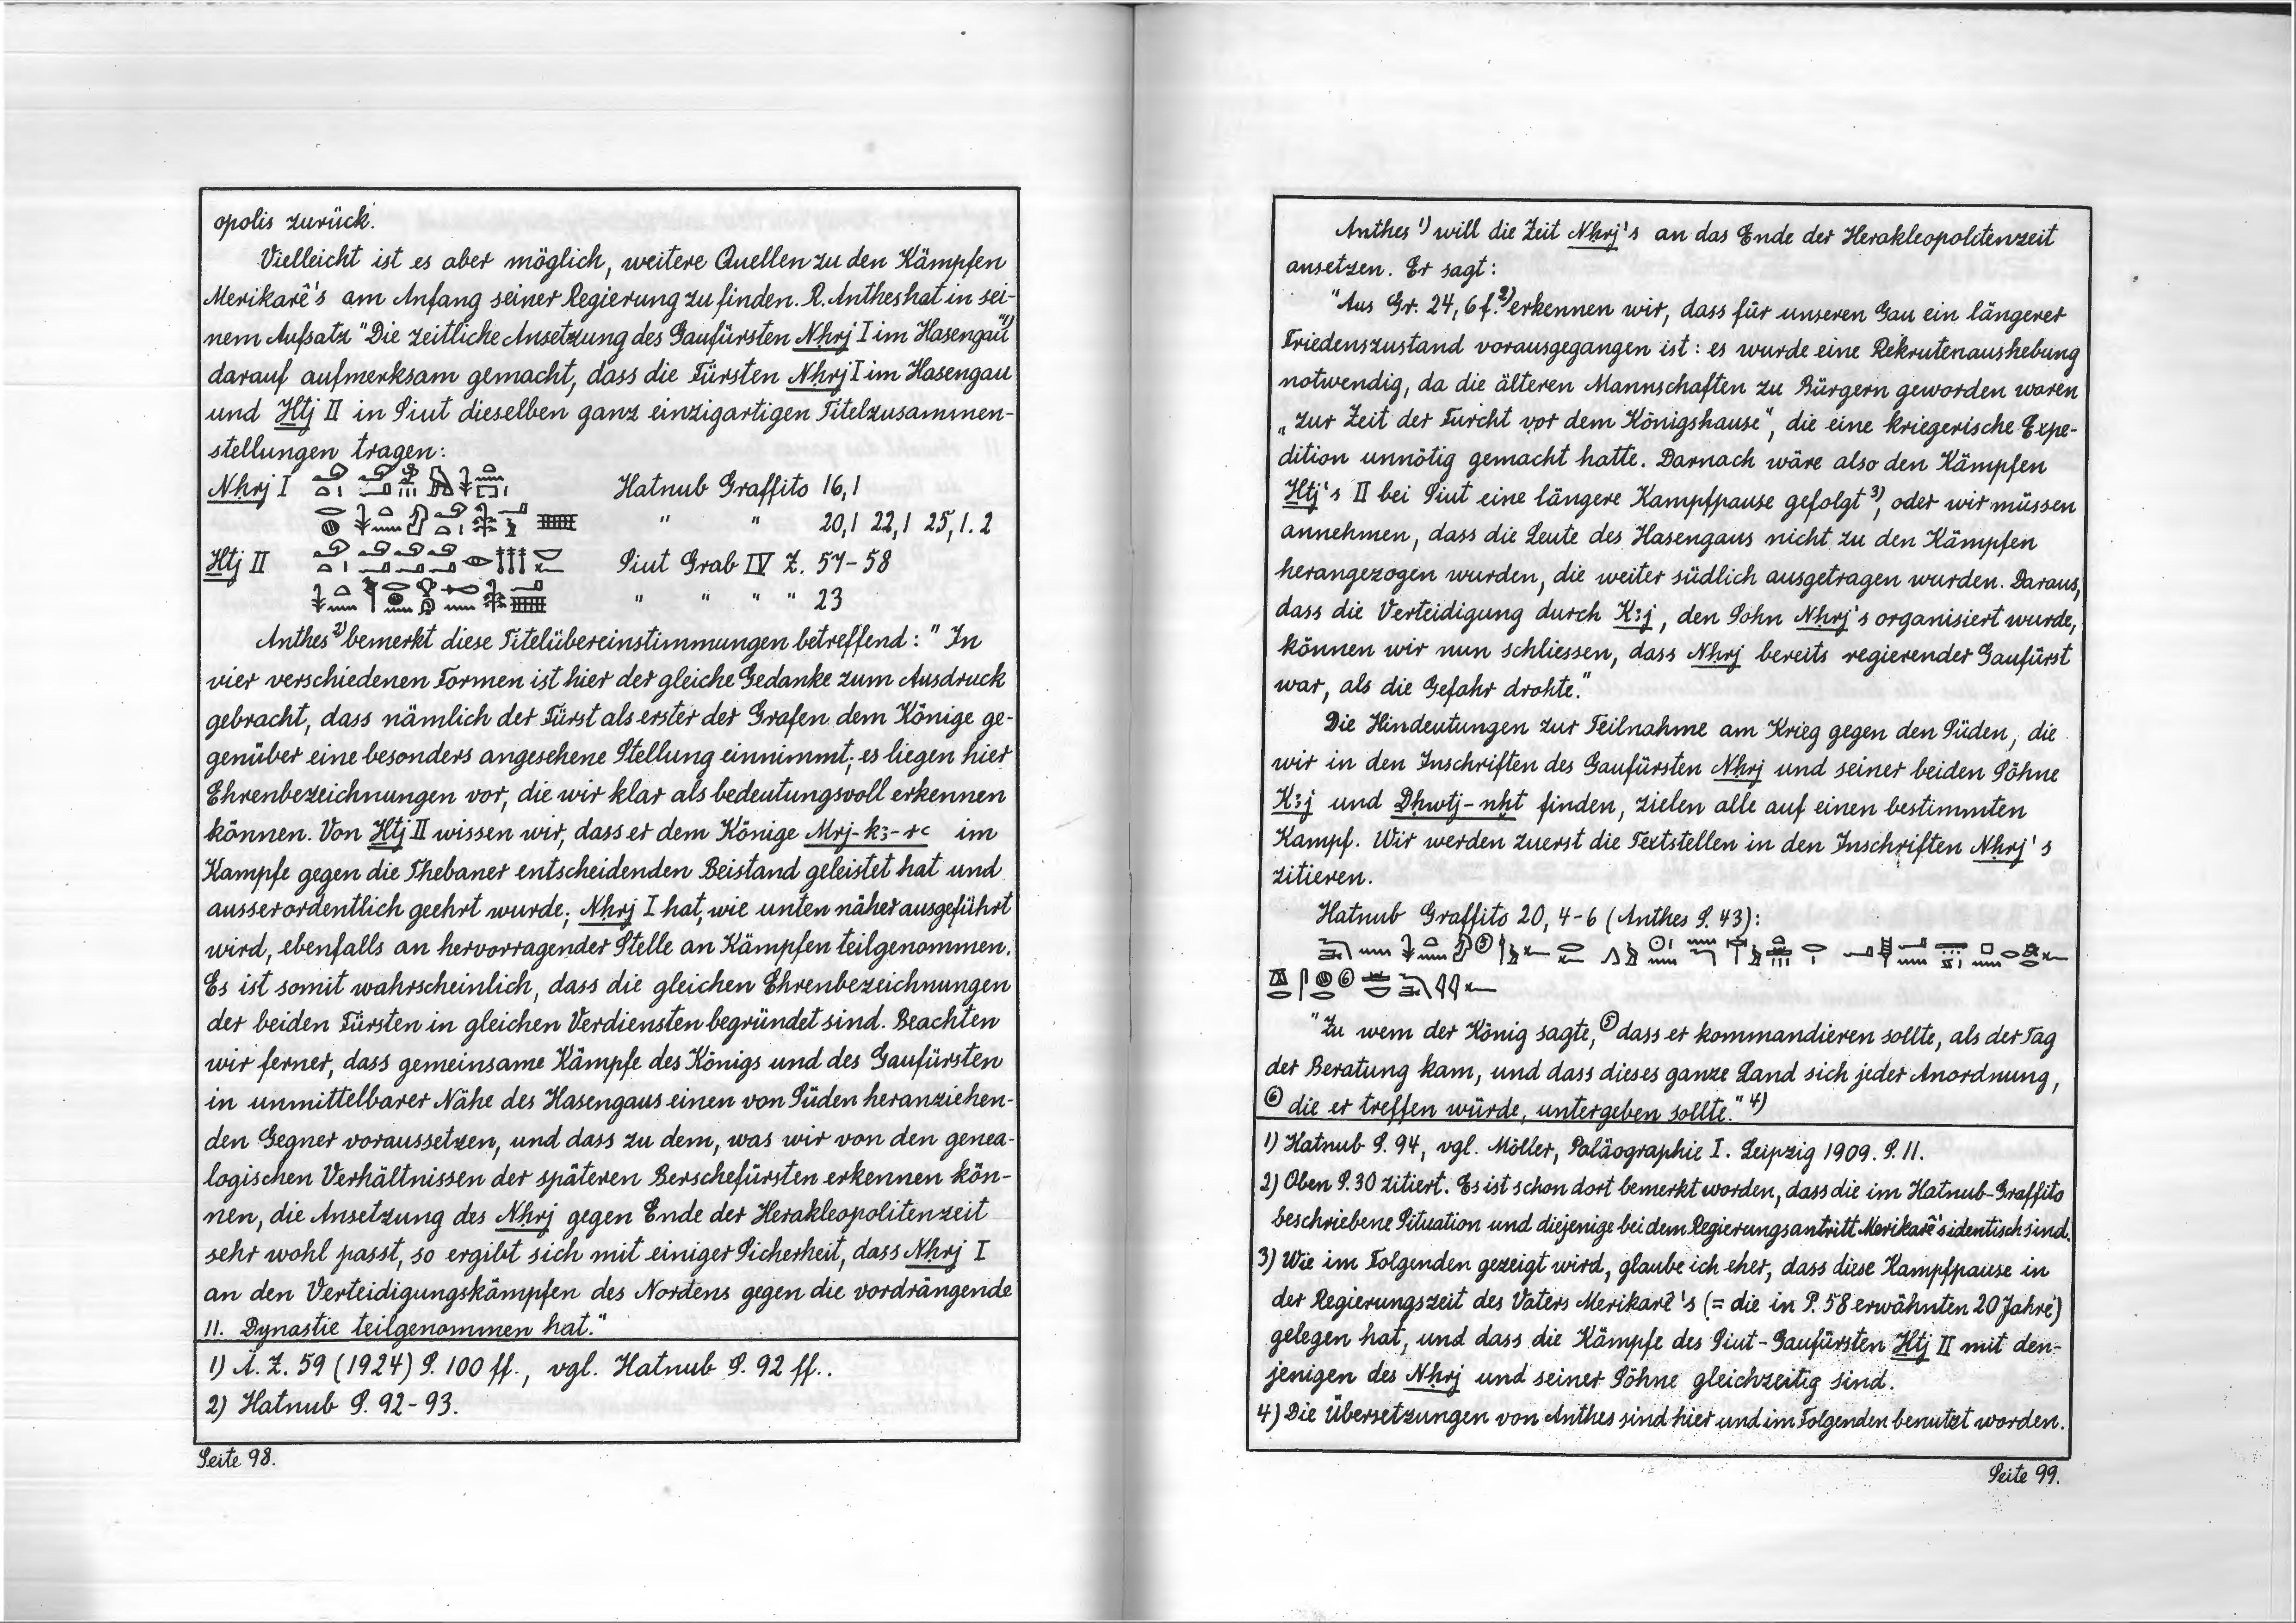 opolis zurück.
Vielleicht ist es aber möglich, weitere Quellen zu den Kämpfen
Merikarê's am Anfang seiner Regierung zu finden. R. Anthes hat in sei-
nem Aufsatz "Die zeitliche Ansetzung des Gaufürsten Nḥrj I im Hasengau"1)
darauf aufmerksam gemacht, dass die Fürsten Nḥrj I im Hasengau
und Ḫtj II in Siut dieselben ganz einzigartigen Titelzusammen-
stellungen tragen:
Nḥrj I Hatnub Graffito 16,1
" " 20,1 22,1 25,1.2
Ḫtj II Siut Grab IV Z. 57-58
" " " " 23
Anthes2) bemerkt diese Titelübereinstimmungen betreffend: "In
vier verschiedenen Formen ist hier der gleiche Gedanke zum Ausdruck
gebracht, dass nämlich der Fürst als erster der Grafen dem Könige ge-
genüber eine besonders angesehene Stellung einnimmt; es liegen hier
Ehrenbezeichnungen vor, die wir klar als bedeutungsvoll erkennen
können. Von Ḫtj II wissen wir, dass er dem Könige Mrj-kꜣ-rꜥ im
Kampfe gegen die Thebaner entscheidenden Beistand geleistet hat und
ausserordentlich geehrt wurde; Nḥrj I hat, wie unten näher ausgeführt
wird, ebenfalls an hervorragender Stelle an Kämpfen teilgenommen.
Es ist somit wahrscheinlich, dass die gleichen Ehrenbezeichnungen
der beiden Fürsten in gleichen Verdiensten begründet sind. Beachten
wir ferner, dass gemeinsame Kämpfe des Königs und des Gaufürsten
in unmittelbarer Nähe des Hasengaus einen von Süden heranziehen-
den Gegner voraussetzen, und dass zu dem, was wir von den genea-
logischen Verhältnissen der späteren Berschefürsten erkennen kön-
nen, die Ansetzung des Nḥrj gegen Ende der Herakleopolitenzeit
sehr wohl passt, so ergibt sich mit einiger Sicherheit, dass Nḥrj I
an den Verteidigungskämpfen des Nordens gegen die vordrängende
11. Dynastie teilgenommen hat."
1) Ä.Z. 59 (1924) S. 100 ff., vgl. Hatnub S. 92 ff..
2) Hatnub S. 92-93.
Seite 98.
Anthes 1) will die Zeit Nḥrj's an das Ende der Herakleopolitenzeit
ansetzen. Er sagt:
"Aus Gr. 24, 6 f.2) erkennen wir, dass für unseren Gau ein längerer
Friedenszustand vorausgegangen ist: es wurde eine Rekrutenaushebung
notwendig, da die älteren Mannschaften zu Bürgern geworden waren
„zur Zeit der Furcht vor dem Königshause", die eine kriegerische Expe-
dition unnötig gemacht hatte. Darnach wäre also den Kämpfen
Ḫtj's II bei Siut eine längere Kampfpause gefolgt3), oder wir müssen
annehmen, dass die Leute des Hasengaus nicht zu den Kämpfen
herangezogen wurden, die weiter südlich ausgetragen wurden. Daraus,
dass die Verteidigung durch Kꜣj, den Sohn Nḥrj's organisiert wurde,
können wir nun schliessen, dass Nḥrj bereits regierender Gaufürst
war, als die Gefahr drohte."
Die Hindeutungen zur Teilnahme am Krieg gegen den Süden, die
wir in den Inschriften des Gaufürsten Nḥrj und seiner beiden Söhne
Kꜣj und Ḏḥwtj-nḫt finden, zielen alle auf einen bestimmten
Kampf. Wir werden zuerst die Textstellen in den Inschriften Nḥrj's
zitieren.
Hatnub Graffito 20, 4-6 (Anthes S. 43):
"Zu wem der König sagte, ⑤ dass er kommandieren sollte, als der Tag
der Beratung kam, und dass dieses ganze Land sich jeder Anordnung,
⑥ die er treffen würde, untergeben sollte." 4)
1) Hatnub S. 94, vgl. Möller, Paläographie I. Leipzig 1909. S. 11.
2) Oben S. 30 zitiert. Es ist schon dort bemerkt worden, dass die im Hatnub-Graffito
beschriebene Situation und diejenige bei dem Regierungsantritt Merikarê's identisch sind.
3) Wie im Folgenden gezeigt wird, glaube ich eher, dass diese Kampfpause in
der Regierungszeit des Vaters Merikarê's (= die in P. 58 erwähnten 20 Jahre)
gelegen hat, und dass die Kämpfe des Siut-Gaufürsten Ḫtj II mit den-
jenigen des Nḥrj und seiner Söhne gleichzeitig sind.
4) Die Übersetzungen von Anthes sind hier und im Folgenden benutzt worden.
Seite 99.